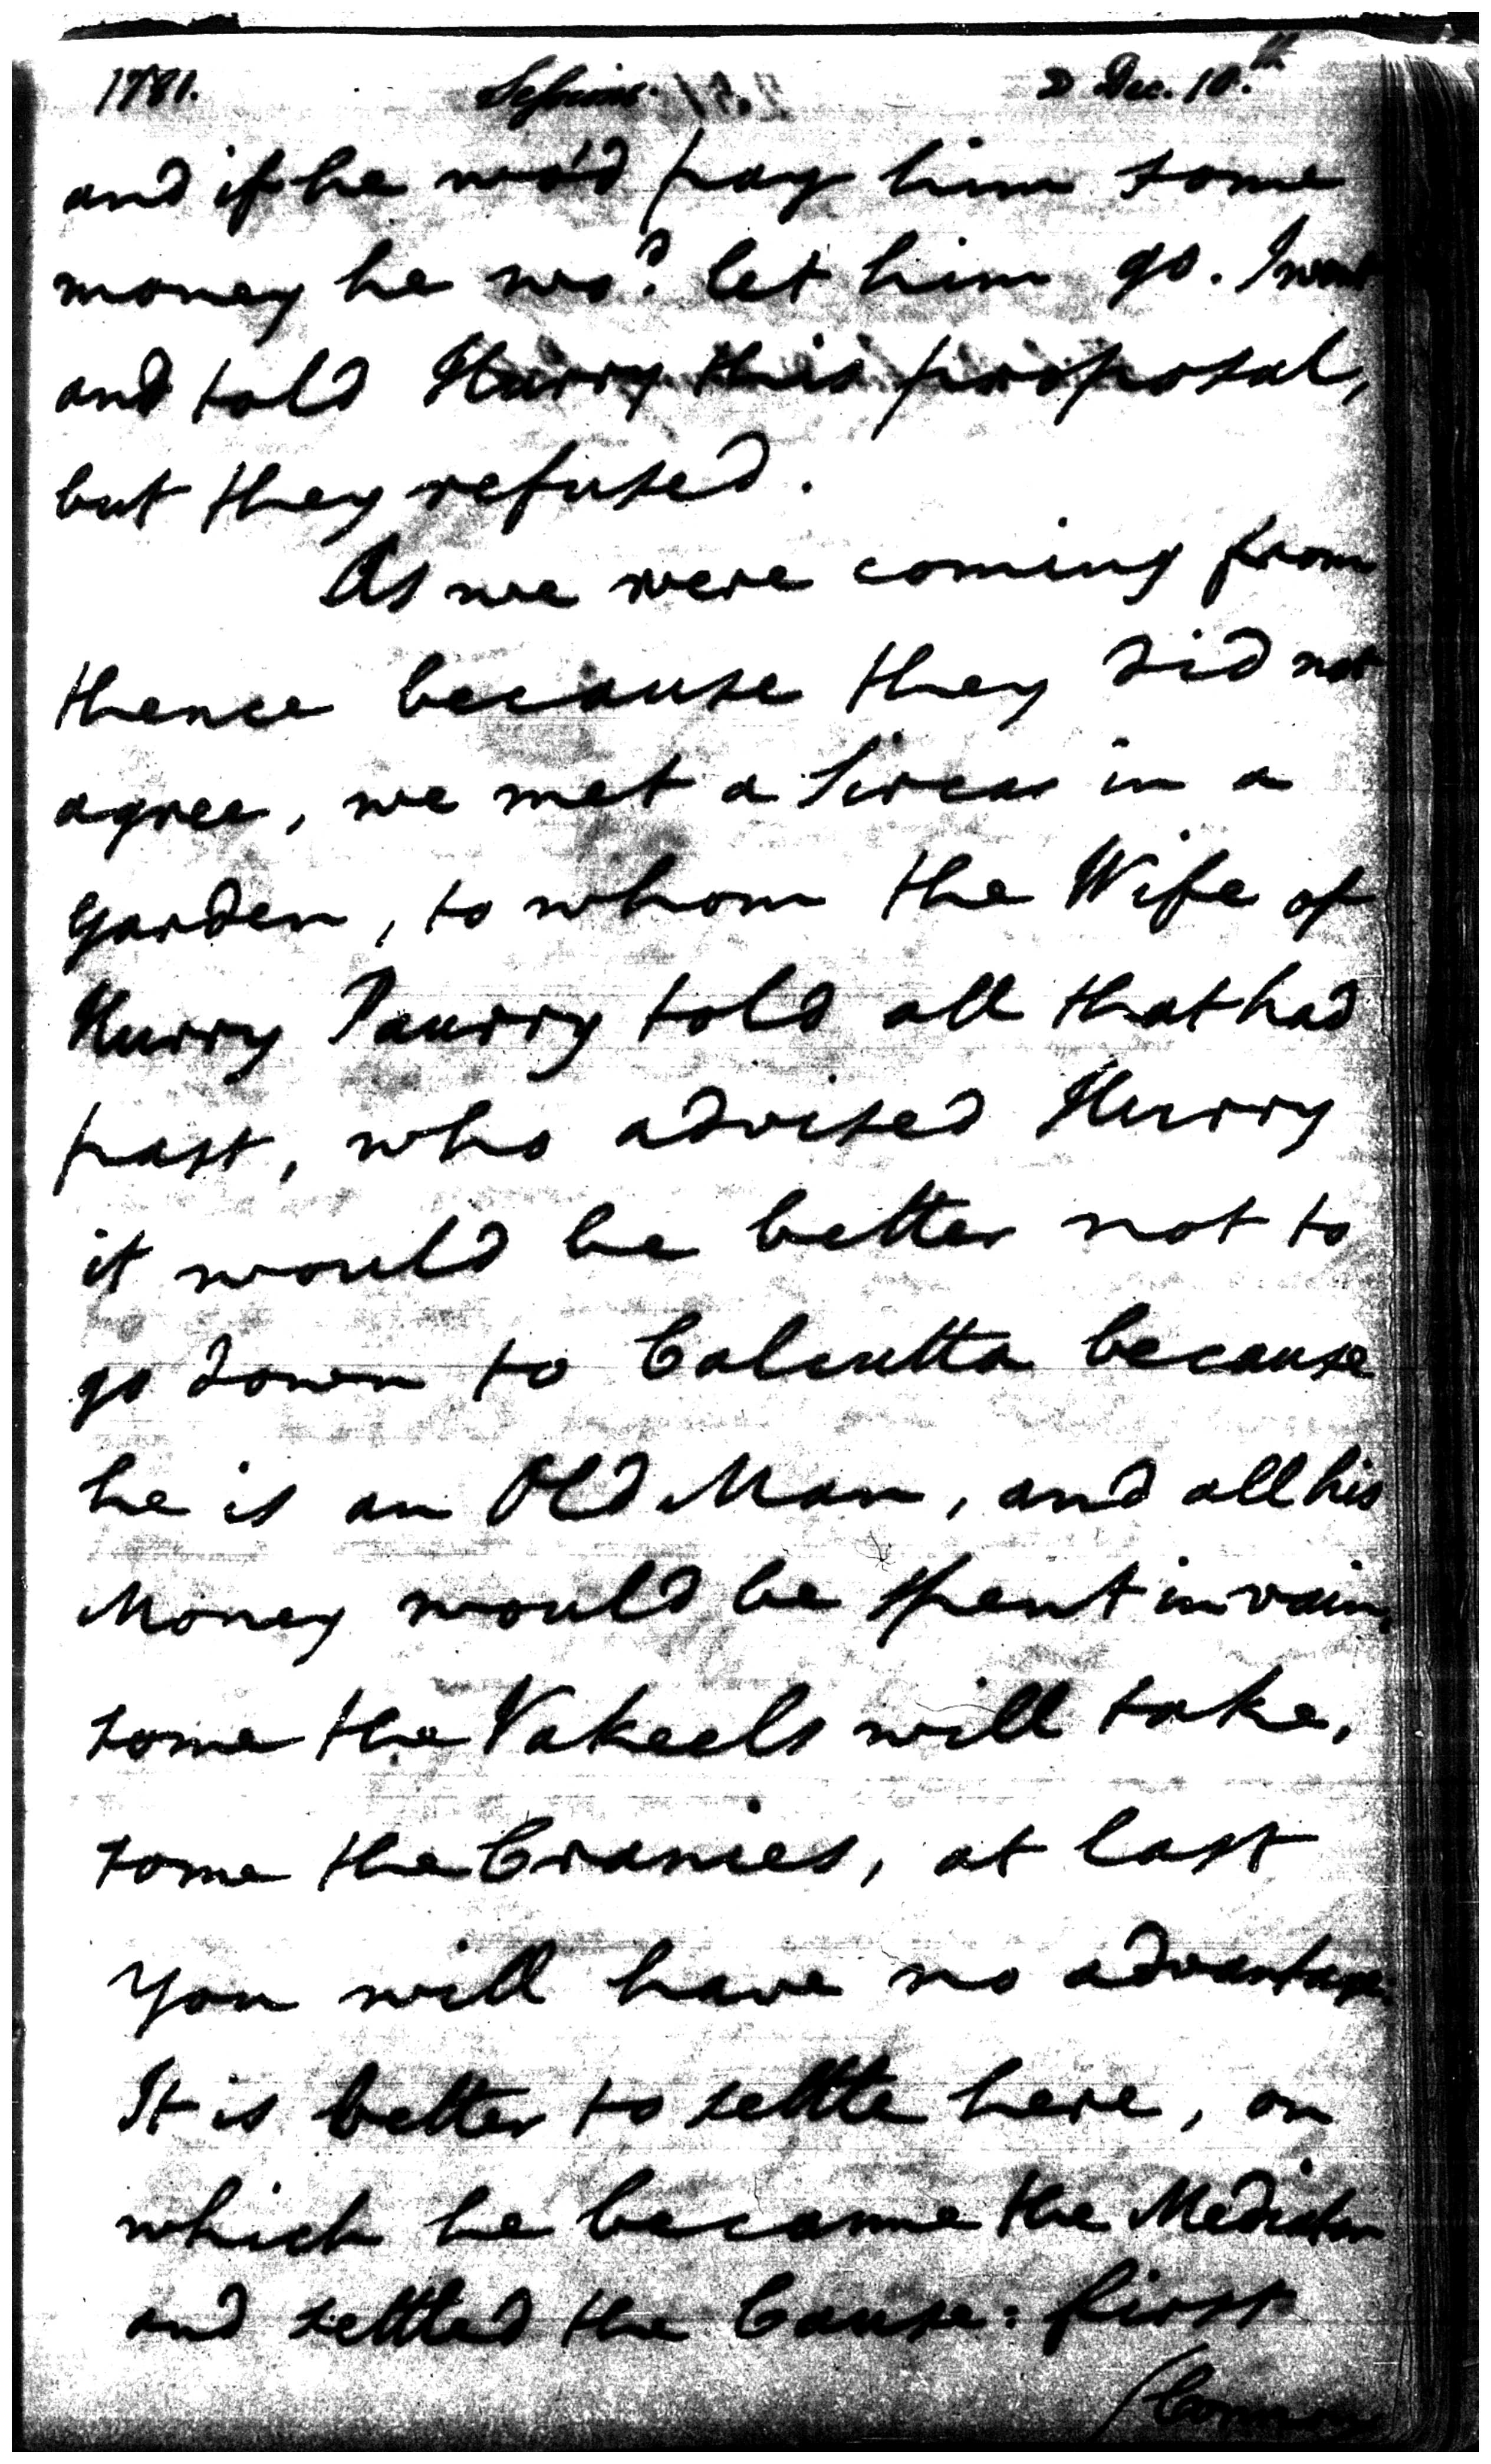 1781. Sessions. D Dec. 10.th
and if he wo'd pay him some
money he wo.d let him go. I went
and told Hurry this proposal,
but they refused.
As we were coming from
thence because they did not
agree, we met a Sircar in a
garden, to whom the Wife of
Hurry Paurry told all that had
past, who advised Hurry
it would be better not to
go down to Calcutta because
he is an Old Man, and all his
Money would be spent in vain,
some the Vakeels will take,
some the Cranies, at last
you will have no advantage.
It is better to settle here, on
which he became the Mediator
and settled the Cause: first